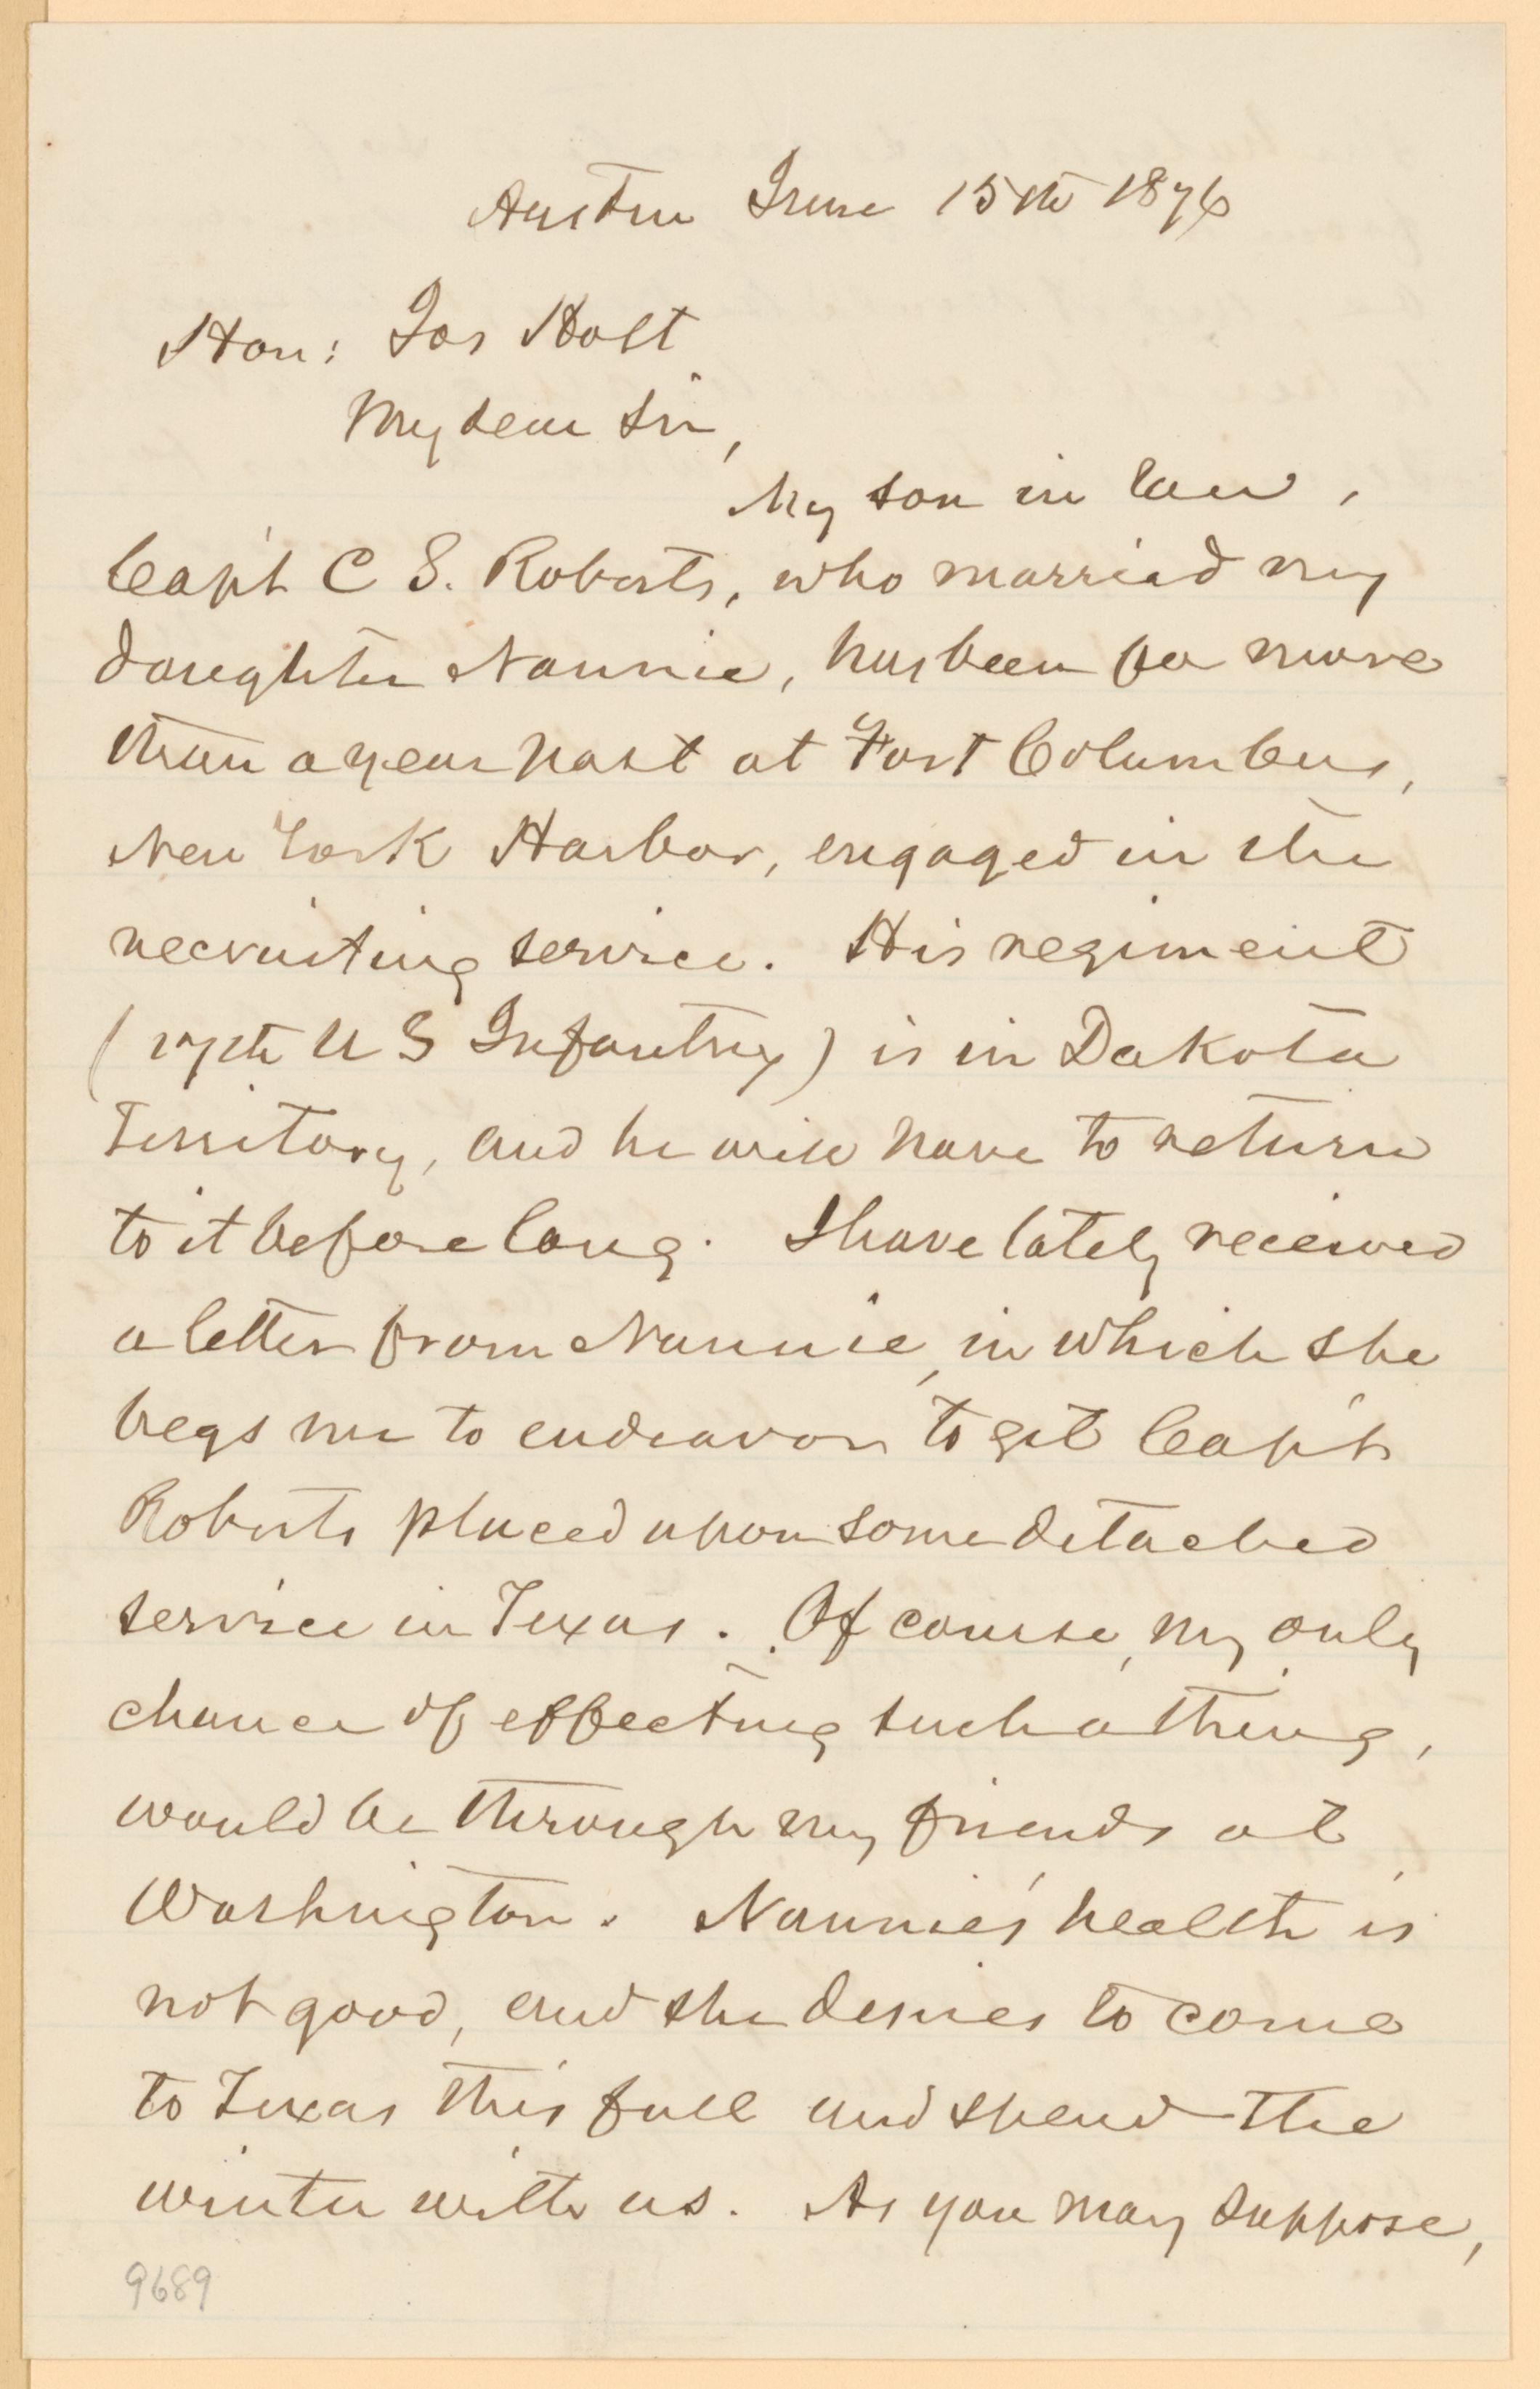 Austin June 15th 1876
Hon: Jos Holt
My dear Sir,
My son in law,
Capt C S. Roberts, who married my
daughter Nannie, has been for more
than a year past at Fort Columbus,
New York Harbor, engaged in the
recruiting service. His regiment
(17th U S Infantry) is in Dakota
Territory, and he will have to return
to it before long. I have lately received
a letter from Nannie, in which she
begs me to endeavor to get Capt
Roberts placed upon some detached
service in Texas. Of course, my only
chance of effecting such a thing,
would be through my friends at
Washington. Nannie's health is
not good, and she desires to come
to Texas this fall and spend the
winter with us. As you may suppose,
9689